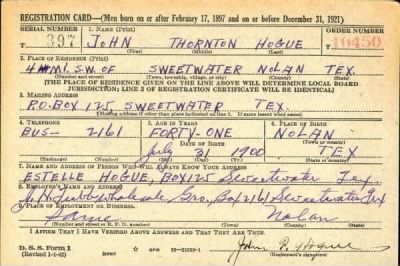 REGISTRATION CARD—(Men born on or after February 17, 1897 and on or before December 31, 1921)
SERIAL NUMBER 1. NAME (Print) ORDER NUMBER
397 JOHN THORNTON HOGUE 10450
(First) (Middle) (Last)
2. PLACE OF RESIDENCE (Print)
4 MI. S.W. OF SWEETWATER NOLAN TEX.
(Number and street) (Town, township, village, or city) (County) (State)
[THE PLACE OF RESIDENCE GIVEN ON THE LINE ABOVE WILL DETERMINE LOCAL BOARD
JURISDICTION; LINE 2 OF REGISTRATION CERTIFICATE WILL BE IDENTICAL]
3. MAILING ADDRESS
P.O. BOX 125 SWEETWATER TEX.
(Mailing address if other than place indicated on line 2. If same insert word same)
4. TELEPHONE 5. AGE IN YEARS 6. PLACE OF BIRTH
BUS- 2161 FORTY-ONE NOLAN
DATE OF BIRTH (Town or county)
July 31 1900 TEX
(Exchange) (Number) (Mo.) (Day) (Yr.) (State or country)
7. NAME AND ADDRESS OF PERSON WHO WILL ALWAYS KNOW YOUR ADDRESS
ESTELLE HOGUE, BOX 125 Sweetwater Tex.
8. EMPLOYER'S NAME AND ADDRESS
Wholesale Gro., Box 2161 Sweetwater Tex
9. PLACE OF EMPLOYMENT OR BUSINESS
Same Nolan
(Number and street or R. F. D. number) (Town) (County) (State)
I AFFIRM THAT I HAVE VERIFIED ABOVE ANSWERS AND THAT THEY ARE TRUE.
D. S. S. Form 1 John Hogue
(Revised 1-1-42) (over) (Registrant's signature)